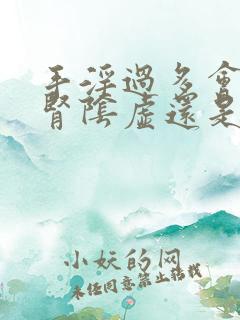 手淫過多會
腎陰虛還是
小妖的网
未经同意禁止转载